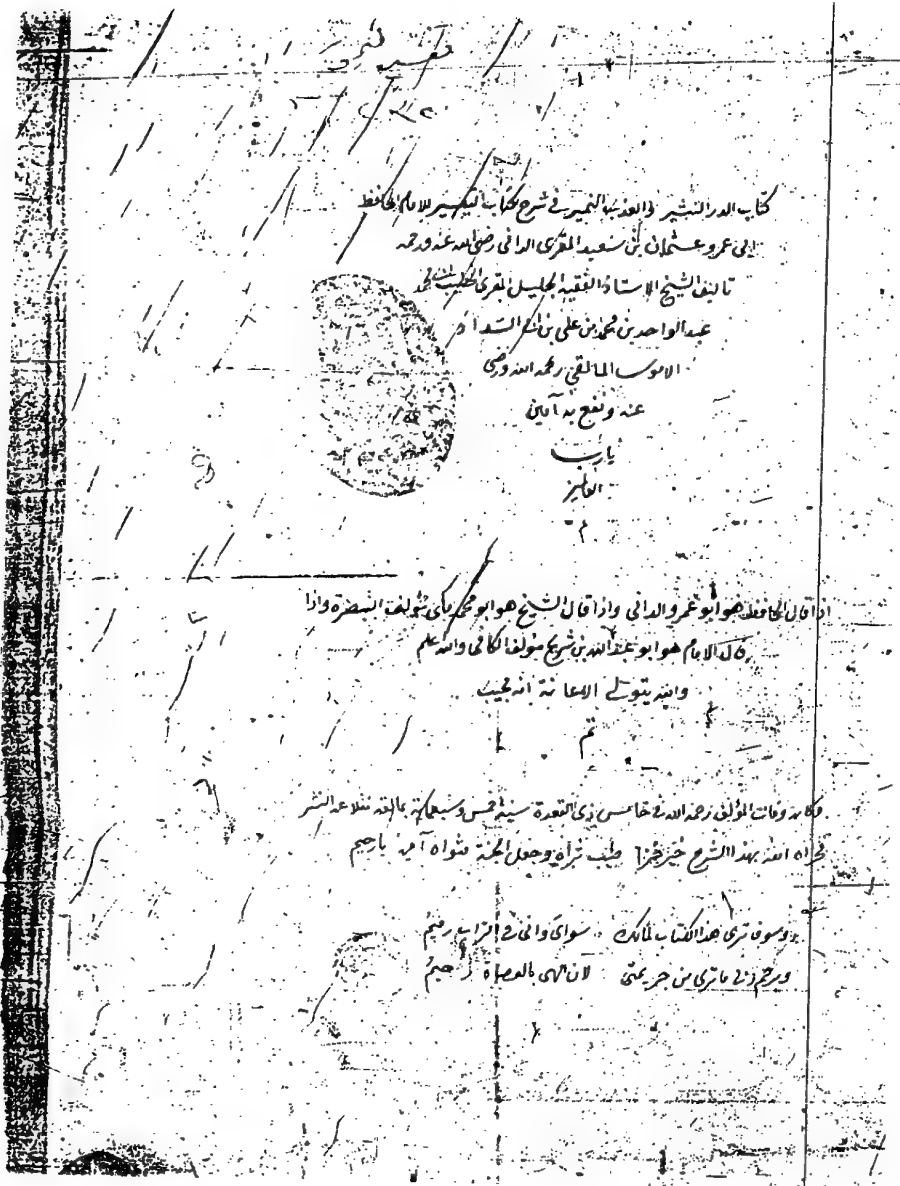 كتاب الدر النثير والعذب النمير في شرح كتاب التيسير للامام الحافظ
ابي عمرو عثمان بن سعيد المقرى الداني رضي الله عنه ورحمه
تاليف الشيخ الاستاذ الفقيه الجليل المقرى الخطيب
عبد الواحد بن محمد بن علي بن ابي السداد
الاموى المالقي رحمه الله ورضي
عنه ونفع به آمين
يارب
العالمين
م
اذا قال الحافظ هو ابو عمرو الداني واذا قال الشيخ هو ابو محمد مكى مؤلف التبصرة واذا
قال الامام هو ابو عبد الله بن شريح مؤلف الكافي والله اعلم
والله يتولى الاعانة انه مجيب
تم
وكانت وفات المؤلف رحمه الله في خامس ذي القعدة سنة خمس وسبعمائة بمالقه نقلا عن النشر
فجزاه الله بهذا الشرح خير جزا طيب ثراه وجعل الجنة مثواه آمين يارحيم
وسوف ترى هذا الكتاب لمالك سواى واني في التراب رميم
ويرحم ربي ما ترى من جريمتى لان الهى بالعصاه رحيم